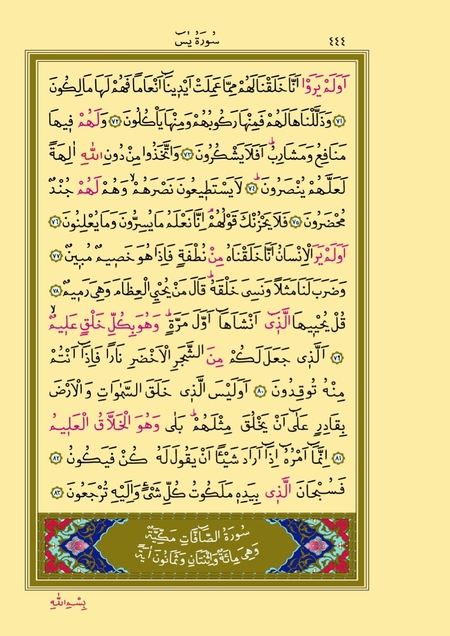 سُورَةُ يٰسٓ ٤٤٤
اَوَلَمْ يَرَوْا اَنَّا خَلَقْنَا لَهُمْ مِمَّا عَمِلَتْ اَيْدٖينَٓا اَنْعَامًا فَهُمْ لَهَا مَالِكُونَ
﴿٧١﴾ وَذَلَّلْنَاهَا لَهُمْ فَمِنْهَا رَكُوبُهُمْ وَمِنْهَا يَاْكُلُونَ ﴿٧٢﴾ وَلَهُمْ فٖيهَا
مَنَافِعُ وَمَشَارِبُۜ اَفَلَا يَشْكُرُونَ ﴿٧٣﴾ وَاتَّخَذُوا مِنْ دُونِ اللّٰهِ اٰلِهَةً
لَعَلَّهُمْ يُنْصَرُونَۜ ﴿٧٤﴾ لَا يَسْتَطٖيعُونَ نَصْرَهُمْۙ وَهُمْ لَهُمْ جُنْدٌ
مُحْضَرُونَ ﴿٧٥﴾ فَلَا يَحْزُنْكَ قَوْلُهُمْۢ اِنَّا نَعْلَمُ مَا يُسِرُّونَ وَمَا يُعْلِنُونَ ﴿٧٦﴾
اَوَلَمْ يَرَ الْاِنْسَانُ اَنَّا خَلَقْنَاهُ مِنْ نُطْفَةٍ فَاِذَا هُوَ خَصٖيمٌ مُبٖينٌ ﴿٧٧﴾
وَضَرَبَ لَنَا مَثَلًا وَنَسِىَ خَلْقَهُۜ قَالَ مَنْ يُحْيِى الْعِظَامَ وَهِىَ رَمٖيمٌ ﴿٧٨﴾
قُلْ يُحْيٖيهَا الَّذٖٓى اَنْشَاَهَٓا اَوَّلَ مَرَّةٍۜ وَهُوَ بِكُلِّ خَلْقٍ عَلٖيمٌۙ
﴿٧٩﴾ اَلَّذٖى جَعَلَ لَكُمْ مِنَ الشَّجَرِ الْاَخْضَرِ نَارًا فَاِذَٓا اَنْتُمْ
مِنْهُ تُوقِدُونَ ﴿٨٠﴾ اَوَلَيْسَ الَّذٖى خَلَقَ السَّمٰوَاتِ وَالْاَرْضَ
بِقَادِرٍ عَلٰٓى اَنْ يَخْلُقَ مِثْلَهُمْۜ بَلٰى وَهُوَ الْخَلَّاقُ الْعَلٖيمُ
﴿٨١﴾ اِنَّمَٓا اَمْرُهُٓ اِذَٓا اَرَادَ شَيْـًٔا اَنْ يَقُولَ لَهُ كُنْ فَيَكُونُ ﴿٨٢﴾
فَسُبْحَانَ الَّذٖى بِيَدِهٖ مَلَكُوتُ كُلِّ شَىْءٍ وَاِلَيْهِ تُرْجَعُونَ ﴿٨٣﴾
سُورَةُ الصَّٓافَّاتِ مَكِّيَّةٌ
وَهِىَ مِائَةٌ وَاِثْنَتَانِ وَثَمَانُونَ اٰيَةً
بِسْمِ اللّٰهِ